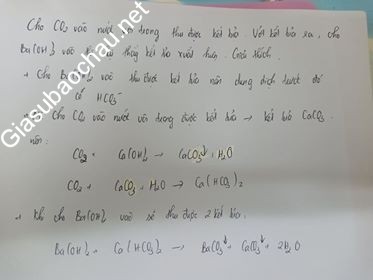 Cho CO2 vào nước vôi trong thu được kết tủa. Vớt kết tủa ra, cho
Ba(OH)2 vào thấy kết tủa xuất hiện. Giải thích.
+ Cho Ba(OH)2 vào thu được kết tủa nên dung dịch trước đó
có HCO3-
Cho CO2 vào nước vôi trong được kết tủa → kết tủa CaCO3
nên:
CO2 + Ca(OH)2 → CaCO3↓ + H2O
CO2 + CaCO3 + H2O → Ca(HCO3)2
+ Khi cho Ba(OH)2 vào sẽ thu được 2 kết tủa:
Ba(OH)2 + Ca(HCO3)2 → BaCO3↓ + CaCO3↓ + 2H2O
Giasubaochau.net